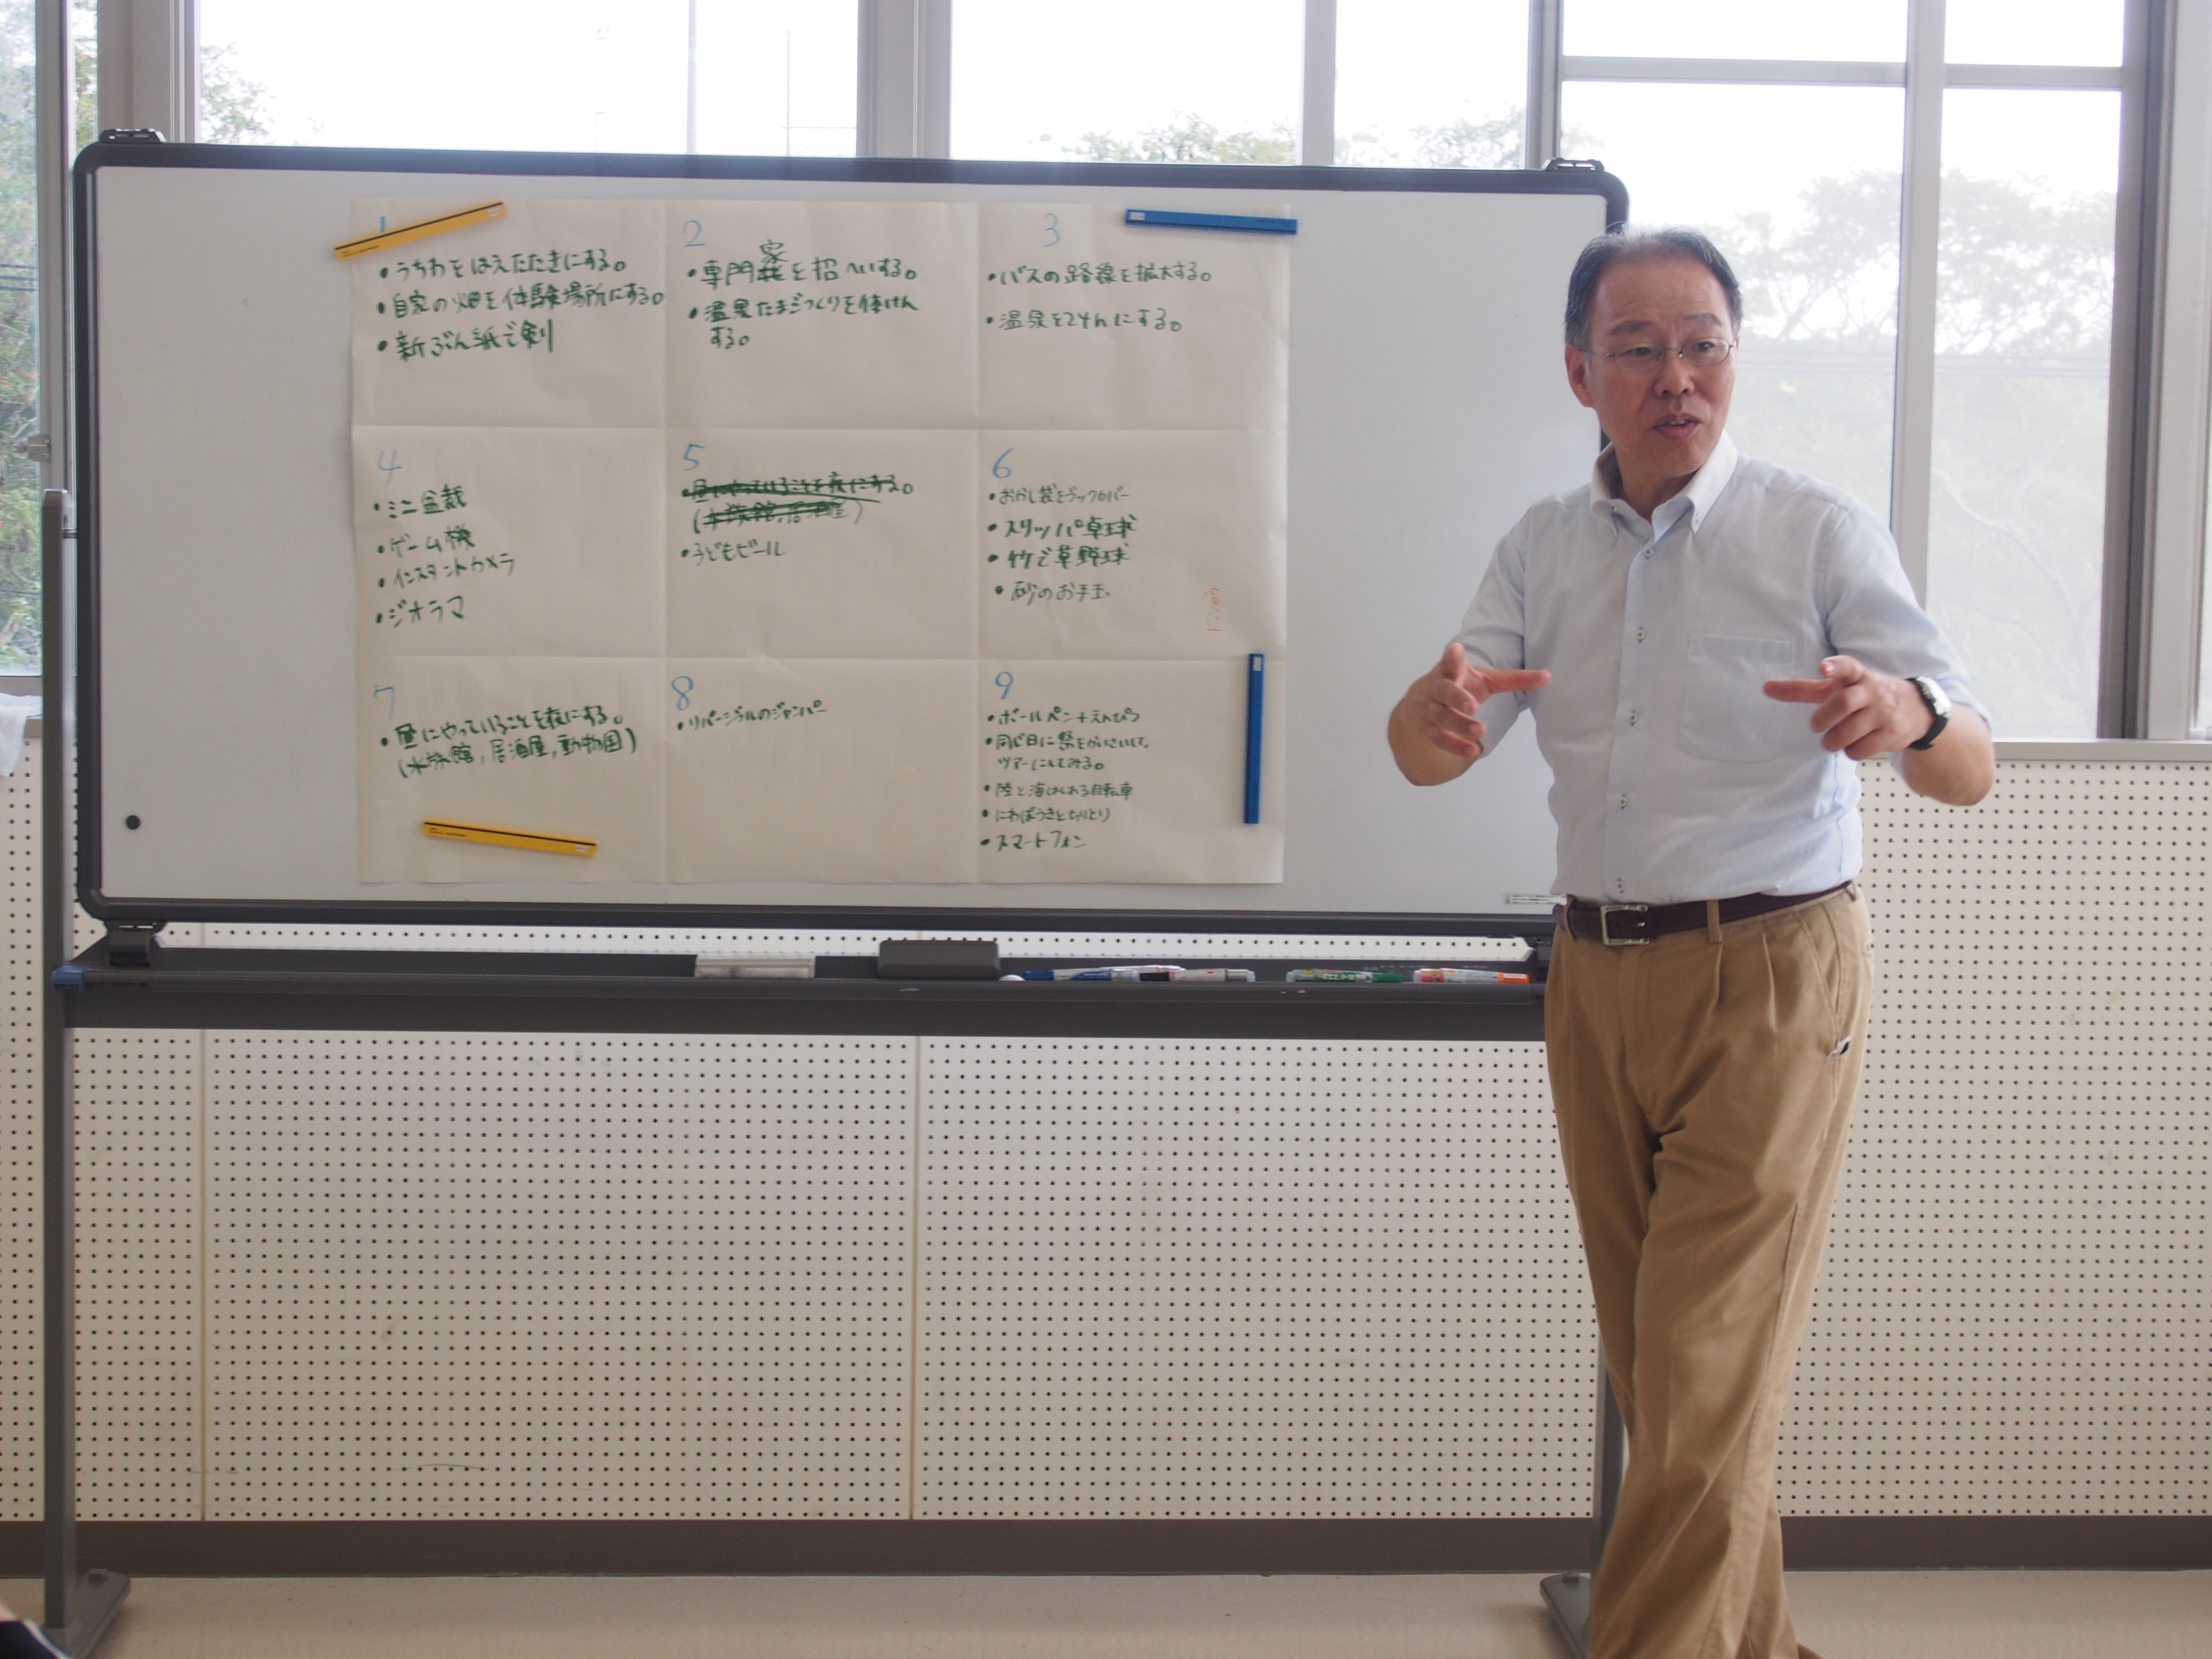 1
・うちわをはえたたきにする。
・自家の畑を体験場所にする。
・新ぶん紙で剣
2
・専門家を招へいする。
・温泉たまごつくりを体けん
する。
3
・バスの路線を拡大する。
・温泉を24hにする。
4
・ミニ盆栽
・ゲーム機
・インスタントカメラ
・ジオラマ
5
・昼にやっていることを夜にする。
(水族館,居酒屋)
・子どもビール
6
・おかし袋をブックカバー
・スリッパ卓球
・竹で草野球
・砂のお手玉
7
・昼にやっていることを夜にする。
(水族館,居酒屋,動物園)
8
・リバーシブルのジャンパー
9
・ボールペン+えんぴつ
・同じ日に祭をかいさいして、
ツアーにしてみる。
・陸と海はしれる自転車
・にわぼうきとちりとり
・スマートフォン